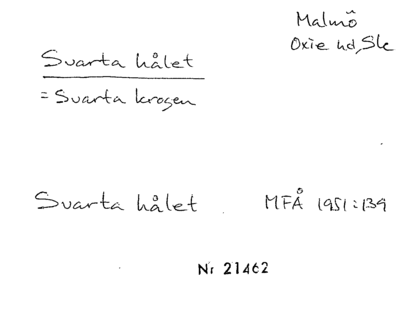 Malmö
Oxie hd, Sk
Svarta hålet
= Svarta krogen
Svarta hålet MFÅ 1951:139
Nr 21462